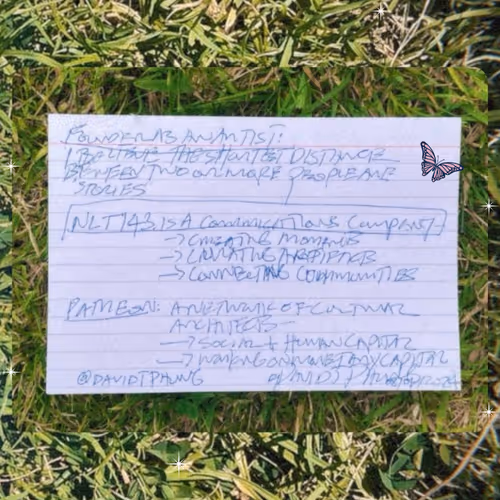 FOUNDER AS AN ARTIST:
I BELIEVE THE SHORTEST DISTANCE
BETWEEN TWO OR MORE PEOPLE ARE
STORIES
NLT143 IS A COMMUNICATIONS COMPANY
→ CREATING MOMENTS
→ CURATING ARTIFACTS
→ CONNECTING COMMUNITIES
PATREON: A NETWORK OF CULTURAL
ARCHITECTS —
→ SOCIAL + HUMAN CAPITAL
→ WORKING ON MONETARY CAPITAL
@DAVIDTPHUNG